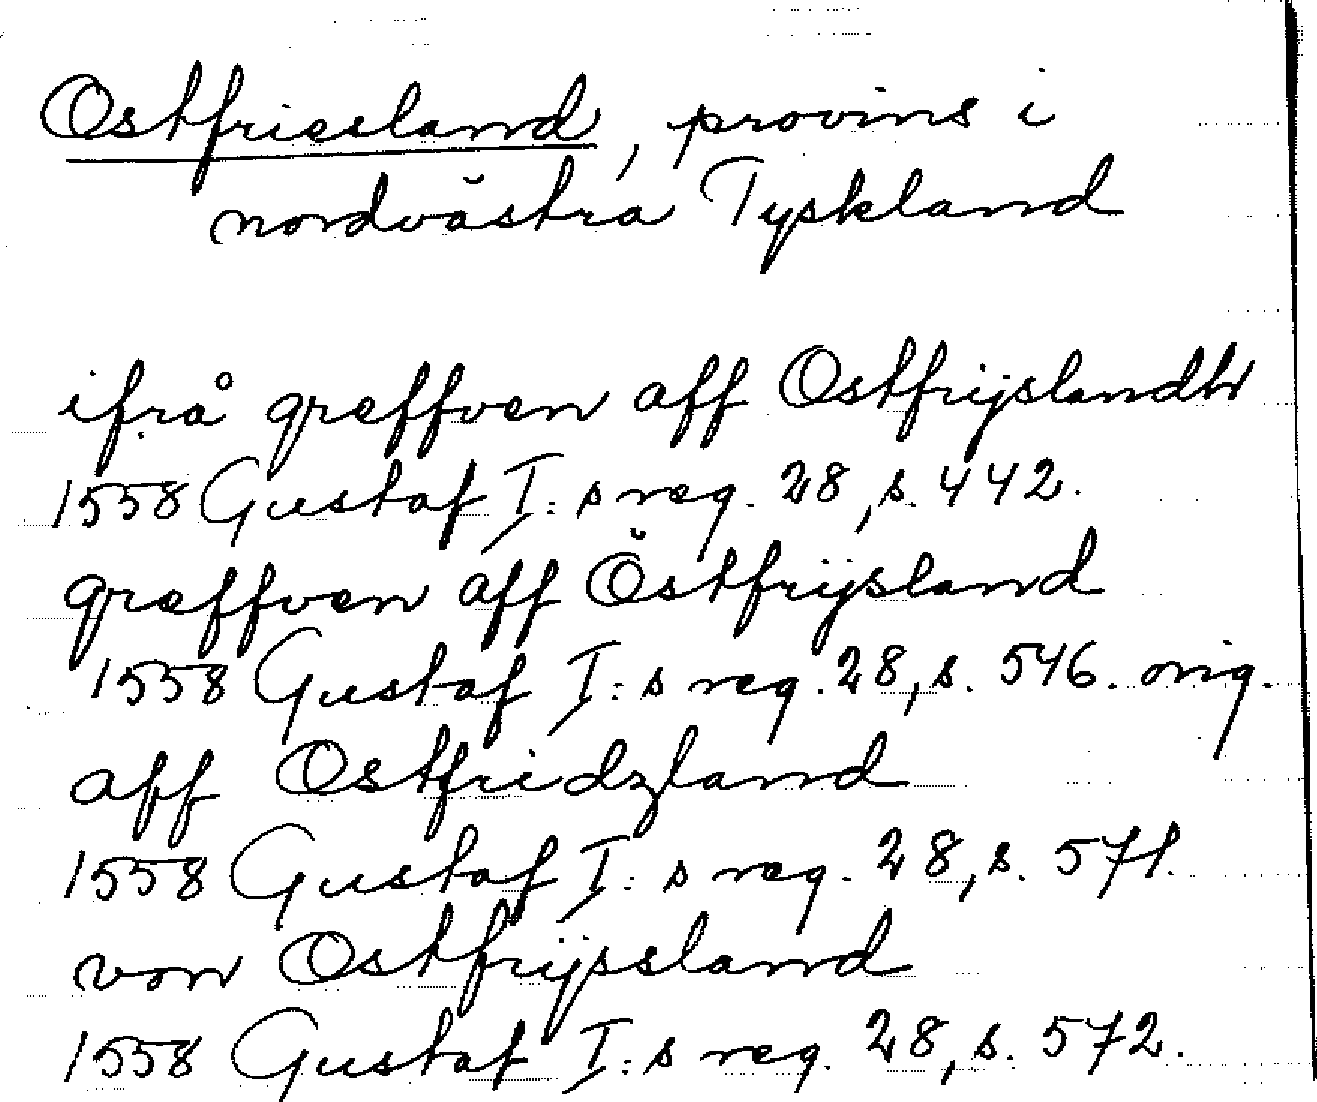 Ostfriesland, provins i
nordvästra Tyskland
ifrå greffven aff Ostfrijslandh
1558 Gustaf I:s reg. 28, s. 442.
greffven aff Östfrijsland
1558 Gustaf I:s reg. 28, s. 546. orig.
aff Ostfridzland
1558 Gustaf I:s reg. 28, s. 571.
von Ostfrijssland
1558 Gustaf I:s reg. 28, s. 572.